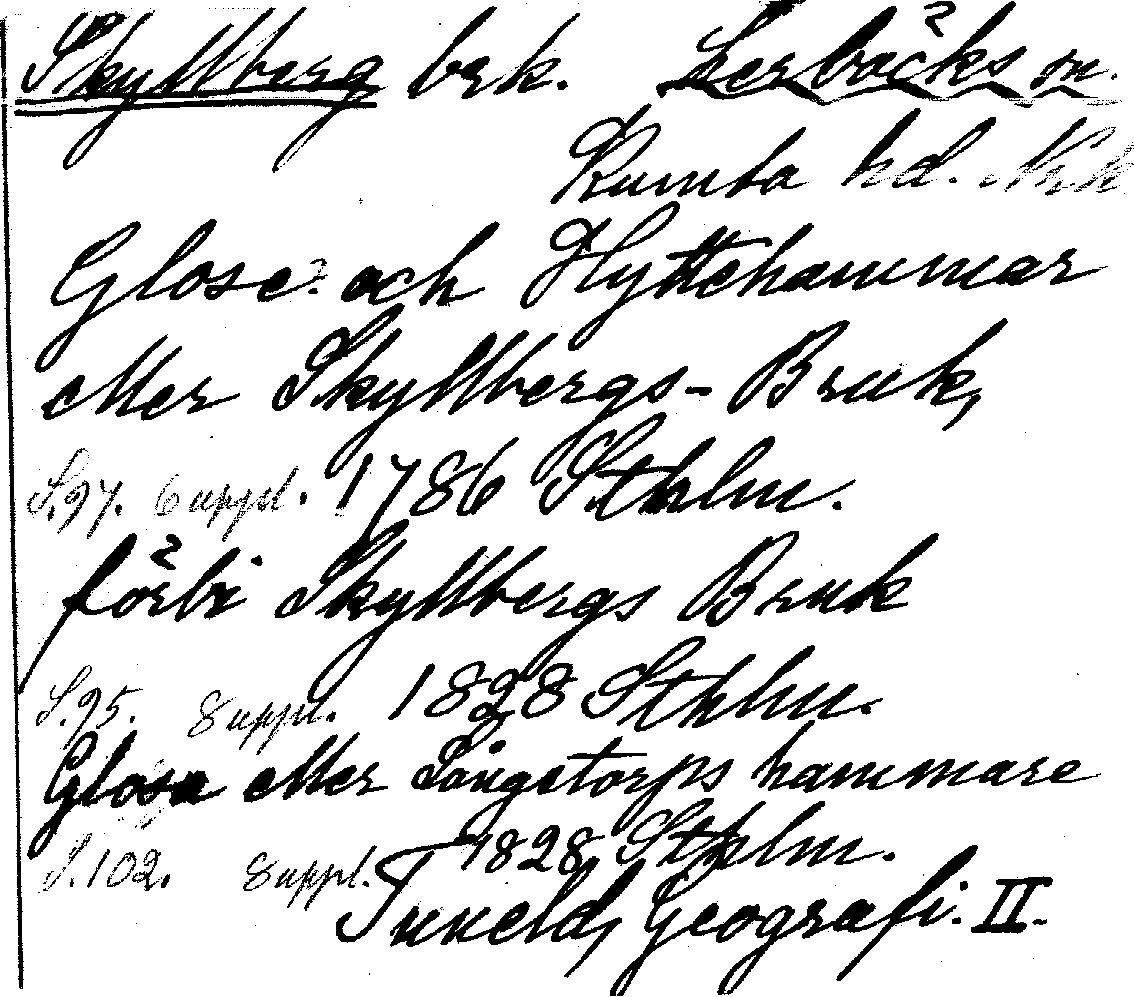 Skyllberg brk. Lerbäcks sn.
Kumla hd. Nrk
Glose- och Hyttehammar
eller Skyllbergs-Bruk,
S.97. 6 uppl. 1786 Sthlm.
förbi Skyllbergs Bruk
S.95. 8 uppl. 1828 Sthlm.
Glosa eller Långetorps hammare
S.102. 8 uppl. 1828 Sthlm.
Tuneld, Geografi. II.